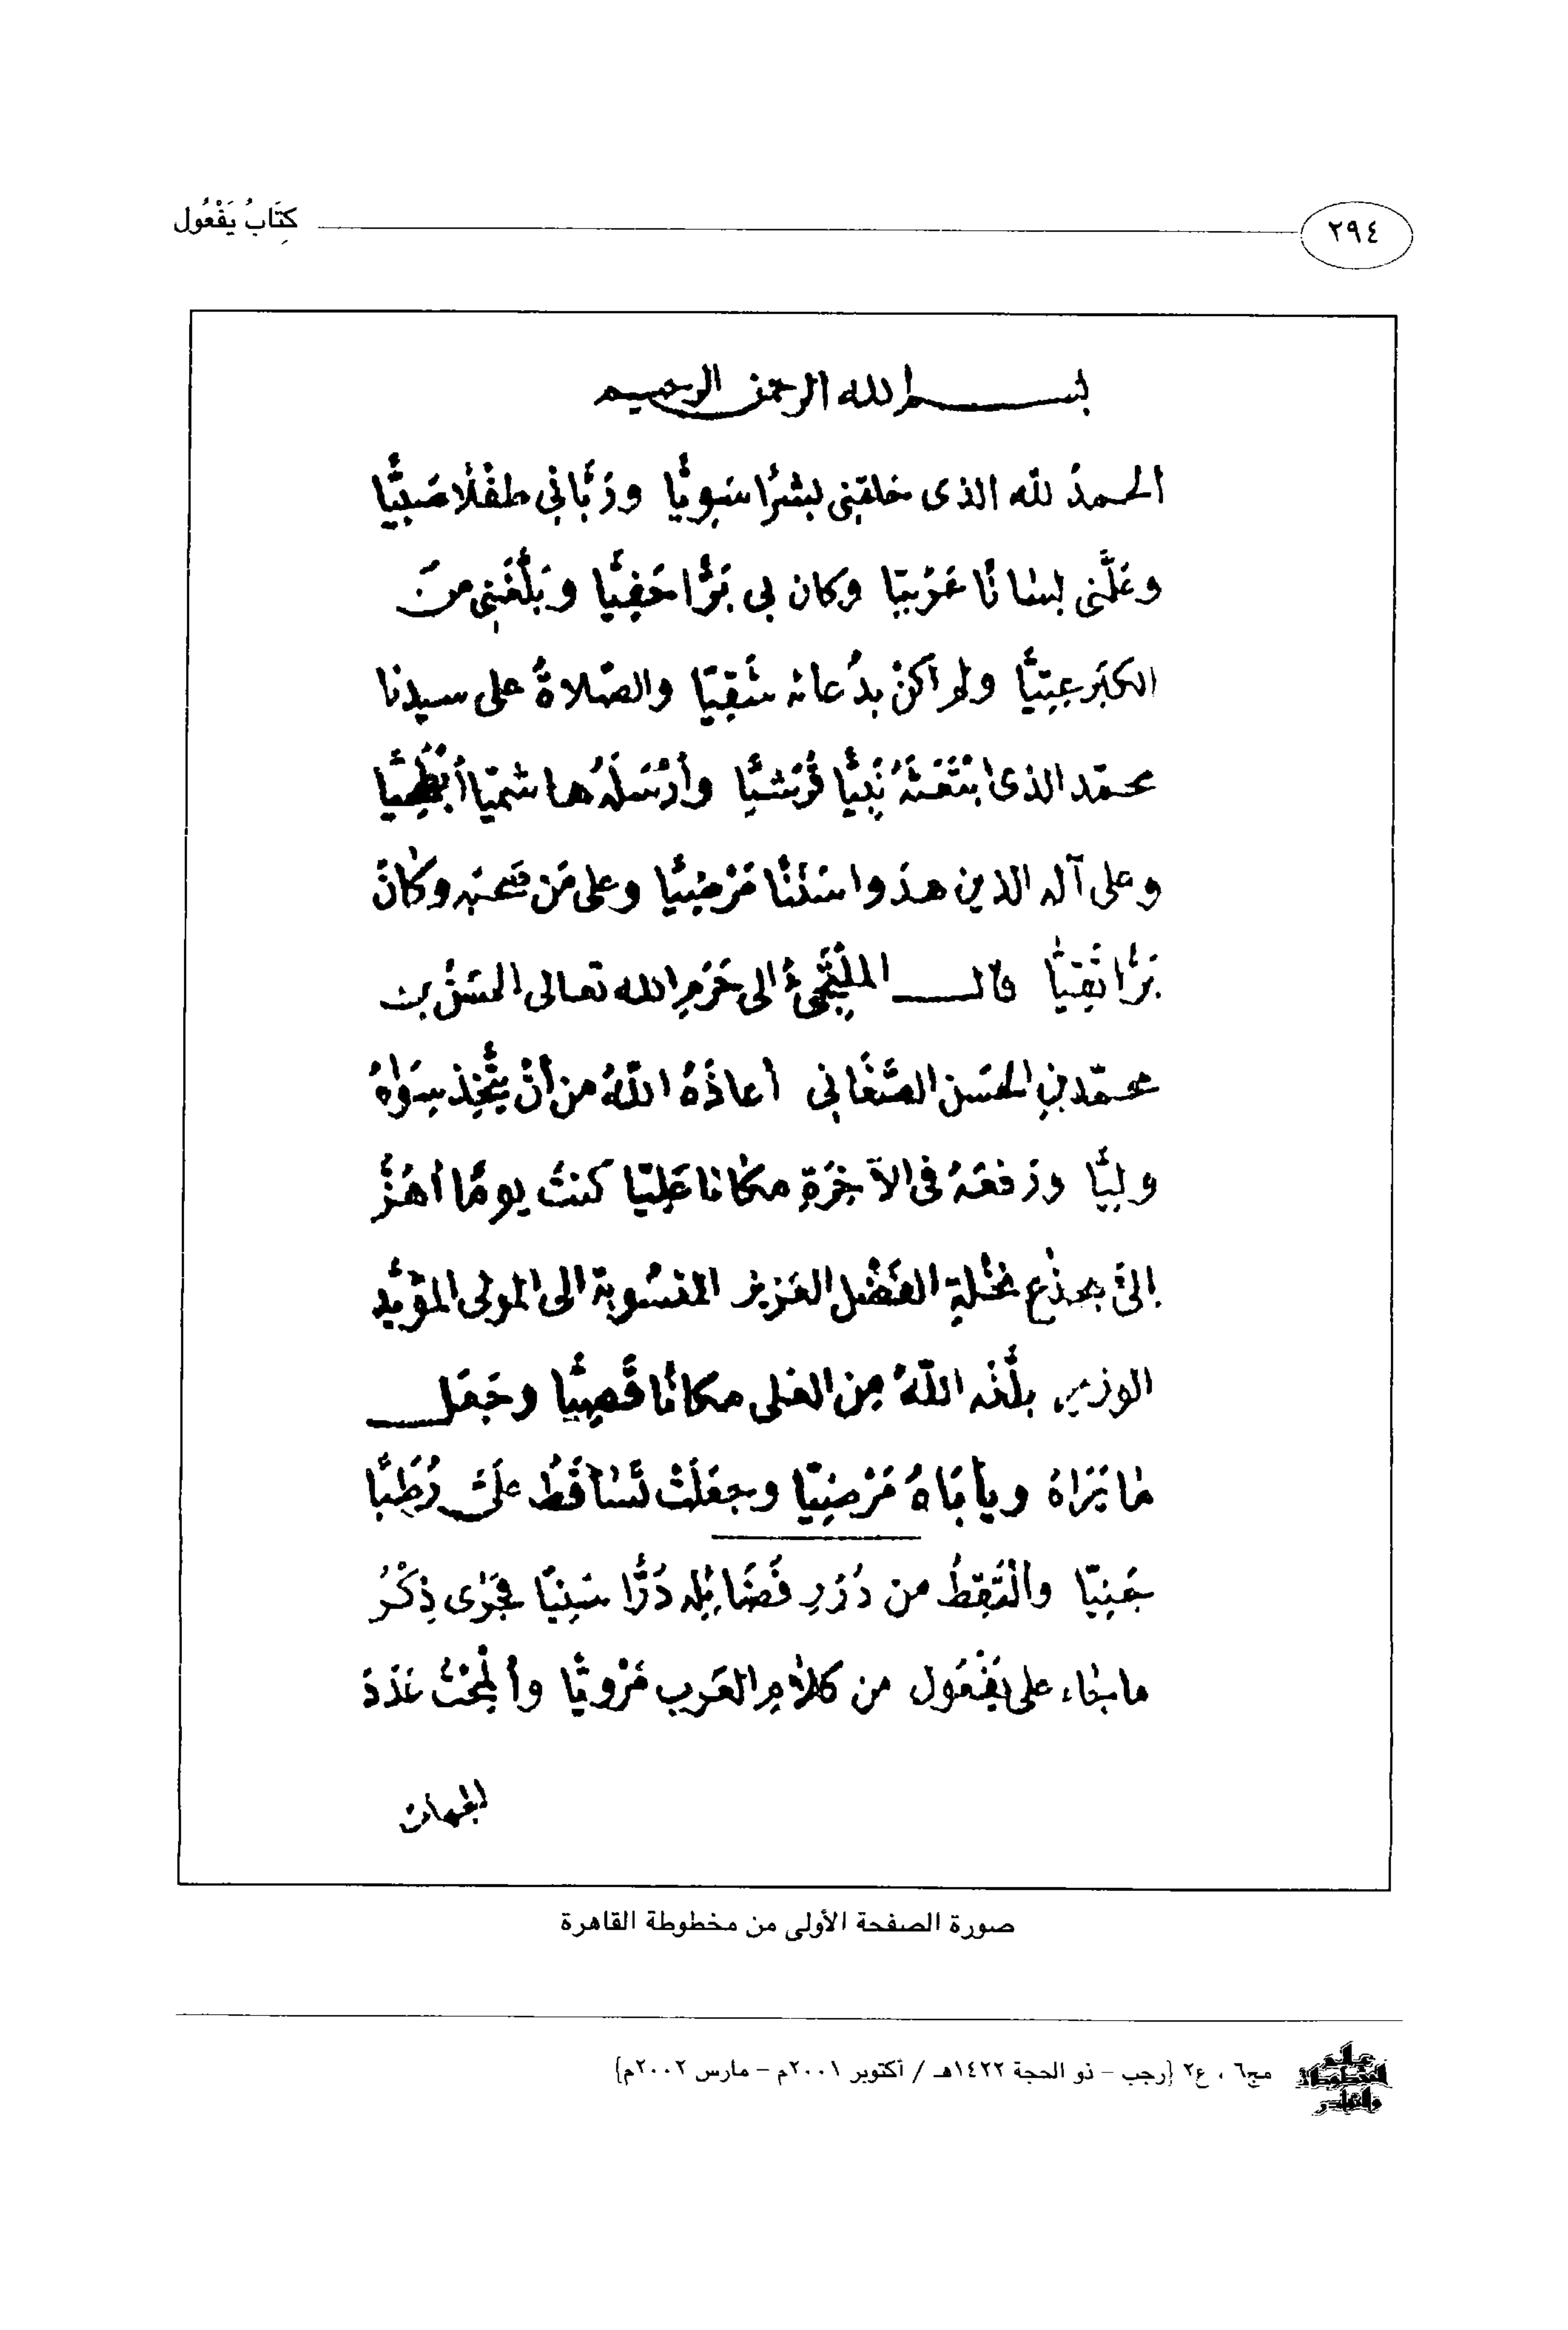 ٢٩٤
كِتَابُ يَفْعُول
بسم الله الرحمن الرحيم
الحمدُ لله الذى خلقنى بشرًا سَوِيًّا ورَبَّانِي طفْلًا صَبِيًّا
وعَلَّمنى لسانًا عَرَبِيّا وكان بى بَرًّا حَفِيًّا وبَلَّغَنِى مِنَ
الكبَر عِتِيًّا ولم أكنْ بدُعائه شَقِيّا والصَّلاةُ على سيدنا
محمّد الذى ابْتَعَثَهُ نَبِيًّا قُرَشيًّا وأَرْسَلَهُ هاشميّا أَبْطَحِيًّا
وعلى آله الذين هدَوا سَنَنًا مَرْضِيًّا وعلى مَن صَحبَه وكانَ
بَرًّا تَقِيًّا قال المُلْتَجِئُ الى حَرَمِ الله تعالى الحَسَنُ بن
محمّد بنِ الحَسَن الصَّغَانِى أعاذَهُ اللّهُ من أنْ يتَّخِذ سِوَاهُ
ولِيًّا ورَفعَهُ فى الآخِرَةِ مكانا عَلِيّا كنتُ يومًا أهُزُّ
إلىّ بجذع نخْلةِ الفَضْل العَزيز المنسُوبة الى المولى المؤيَّد
الوزير بلَّغه اللّهُ من العُلى مكانًا قَصِيًّا وجَعَل
ما يَرَاهُ ويأبَاهُ مَرْضِيّا وجعَلَتْ تَسَاقَطُ علَىَّ رُطَبًا
جَنِيّا والْتَقِطُ من دُرَرِ فَضَائِله دُرًّا سَنِيًّا فجَرَى ذِكْرُ
ما جاء على يَفْعُول من كلامِ العَرب مَرْويًّا وأَلْمَحْتُ عَدَدَ
صورة الصفحة الأولى من مخطوطة القاهرة
عالم المخطوطات والنوادر
مج٦ ، ع٢ {رجب – ذو الحجة ١٤٢٢هـ / أكتوبر ٢٠٠١م – مارس ٢٠٠٢م}